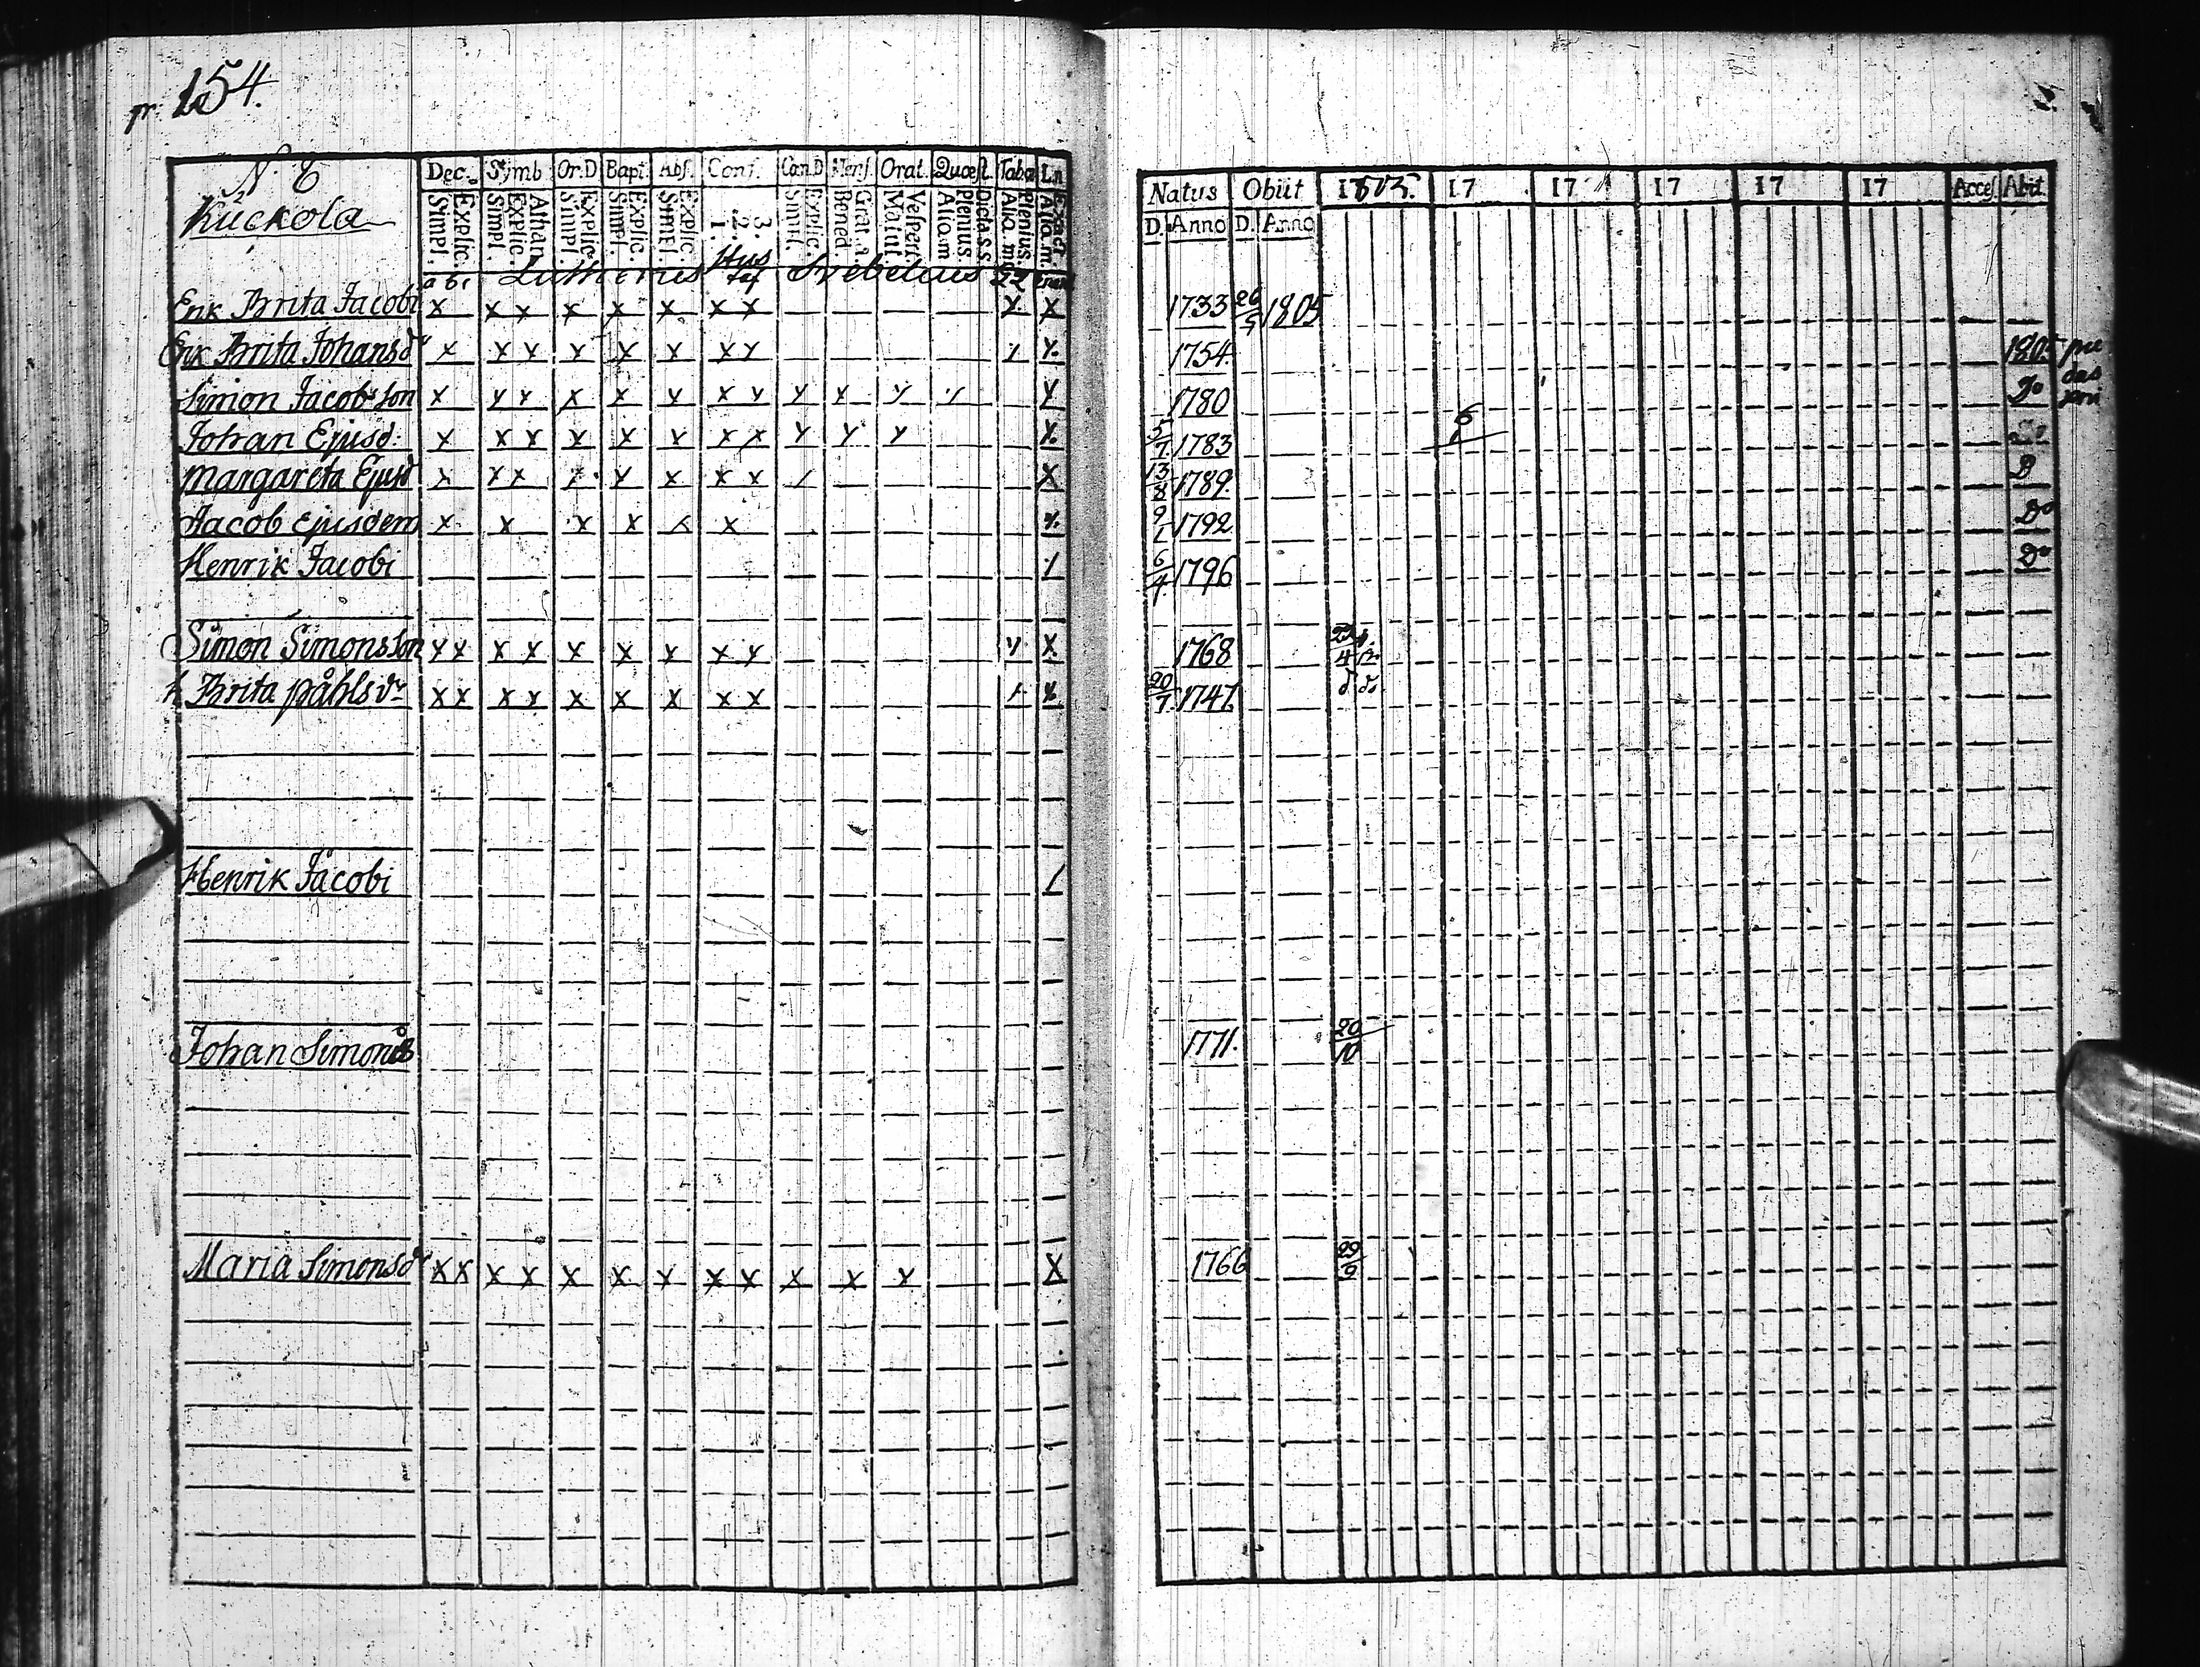 pr. 154.
N. 6
Kuckola
Dec. Symb Or.D Bapt. Abs. Conf. Can.D Mens. Orat. Quæst. Taba Ln
Simpl. Explic. Simpl. Explic. Athan. Simpl. Explic. Simpl. Explic. Simpl. Explic. 1. 2. 3. Simpl. Explic. Bened. Grat.a. Matut. Vespert. Aliq.m Plenius. Dicta S.S. Aliq.m Plenius. Aliq.m. Exact.
Natus Obiit 1803. 17 17 17 17 17 Acces. Abit.
D. Anno D. Anno
a b c Lutherus Hus taf Svebelius
Enk Brita Jacobi x x x x x x x x x x 1733 26/5 1805
Enk Brita Johansdr x x x x x x x x 1754. 1805
Simon Jacobsson x x x x x x x x x x 1780 Do
Johan Ejusd: x x x x x x x x x x x 5/7 1783 6
Margareta Ejusd x x x x x x x x x 13/8 1789. D
Jacob Ejusdem x x x x x x 9/1 1792 Do
Henrik Jacobi 6/4 1796 Do
Simon Simonsson x x x x x x x x x x 1768
h Brita Påhlsdr x x x x x x x x x 20/7 1747
Henrik Jacobi
Johan Simons 1771. 20/10
Maria Simonsdr x x x x x x x x x x x x x 1766 29/9